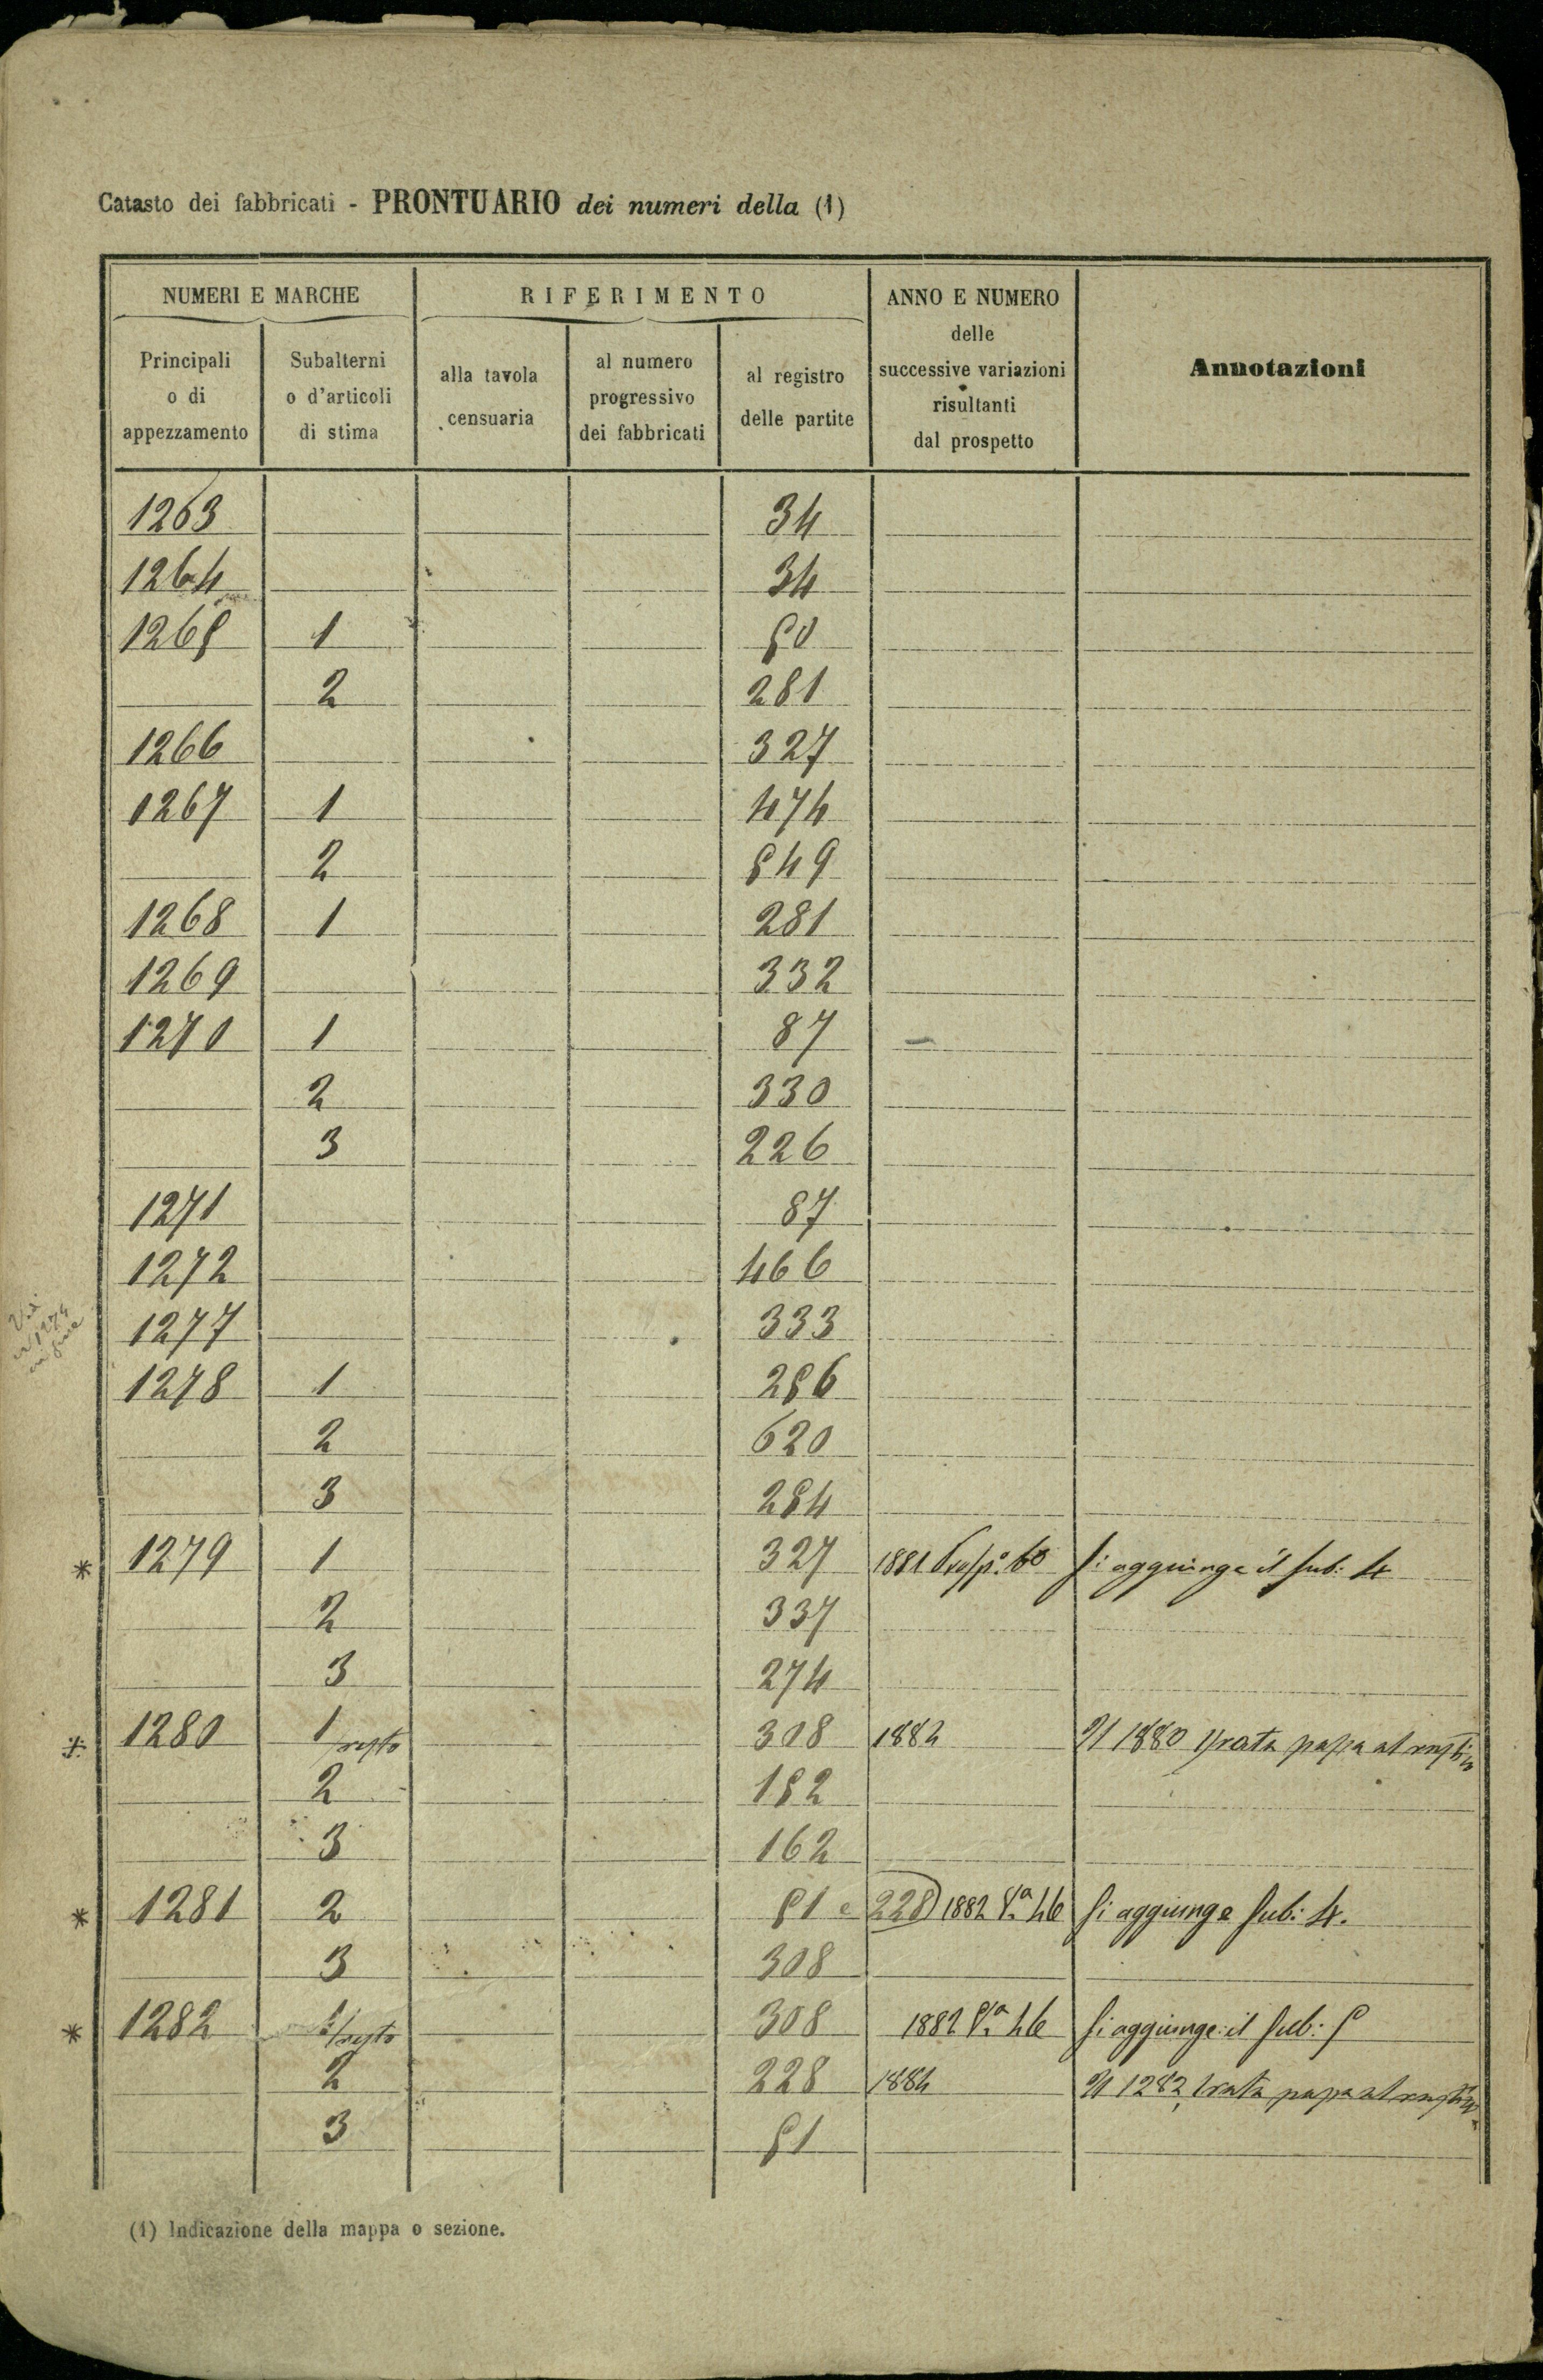 Catasto dei fabbricati - PRONTUARIO dei numeri della (1)
NUMERI E MARCHE
RIFERIMENTO
ANNO E NUMERO
delle
successive variazioni
risultanti
dal prospetto
Annotazioni
Principali
o di
appezzamento
Subalterni
o d'articoli
di stima
alla tavola
censuaria
al numero
progressivo
dei fabbricati
al registro
delle partite
1263 34
1264 34
1265 1 50
2 281
1266 327
1267 1 474
2 549
1268 1 281
1269 332
1270 1 87
2 330
3 226
1271 87
1272 466
Vedi
n 1274
in fine
1277 333
1278 1 256
2 620
3 254
* 1279 1 327 1881 Prosp.o 60 Si aggiunge il sub: 4
2 337
3 274
* 1280 1/resto 308 1884 Il 1880 1/rata passa al
2 152
3 162
* 1281 2 51 e 228 1882 46 Si aggiunge Sub: 4.
3 308
* 1282 1/resto 308 1882 46 Si aggiunge il Sub: 5
2 228 1884 Il 1282 1/rata passa al
3 51
(1) Indicazione della mappa o sezione.